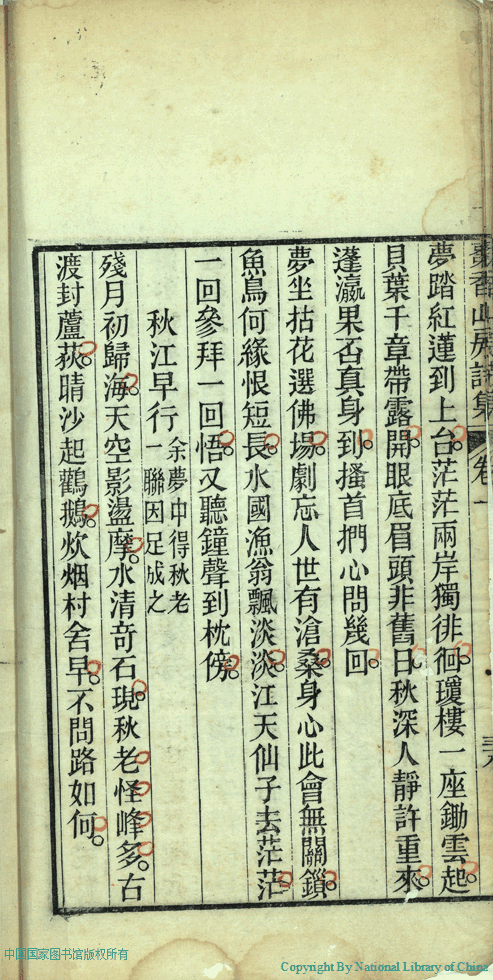 香山房詩集 卷一
夢踏紅蓮到上台茫茫兩岸獨徘徊瓊樓一座鋤雲起
貝葉千章帶露開眼底眉頭非舊日秋深人靜許重來
蓬瀛果否真身到搔首捫心問幾回
夢坐拈花選佛場劇忘人世有滄桑身心此會無關鎖
魚鳥何緣恨短長水國漁翁飄淡淡江天仙子去茫茫
一回參拜一回悟又聽鐘聲到枕傍
秋江早行 余夢中得秋老
一聯因足成之
殘月初歸海天空影盪摩水清奇石現秋老怪峰多古
渡封蘆荻晴沙起鸛鵝炊烟村舍早不問路如何
中国国家图书馆版权所有
Copyright By National Library of China